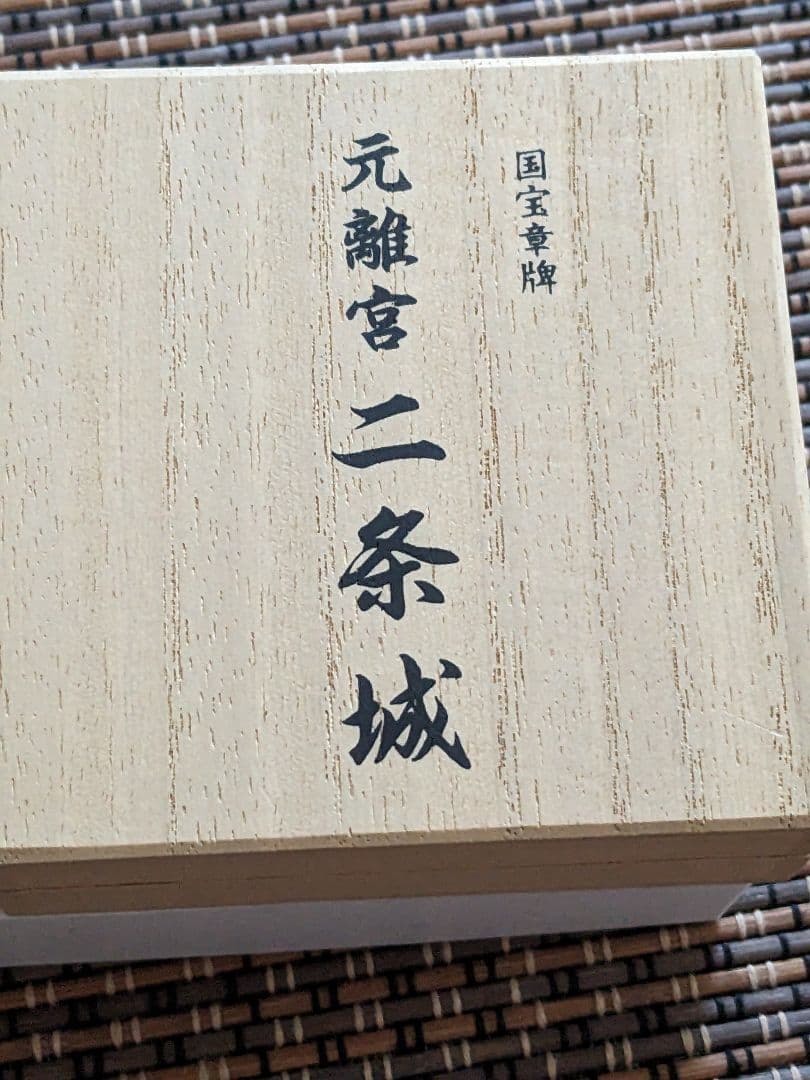 国宝章牌
元離宮 二条城